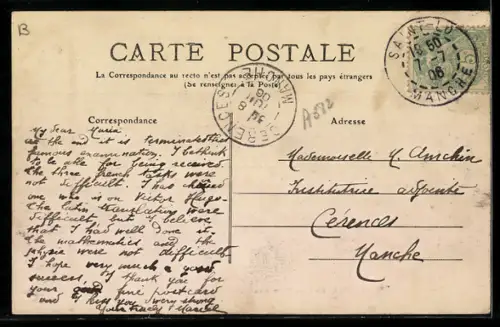 B
CARTE POSTALE
La Correspondance au recto n'est pas acceptée par tous les pays étrangers
(Se renseigner à la Poste)
SAINT-LO
18 50
7-7
06
MANCHE
CERENCES
MANCHE
A882
Correspondance
Adresse
My dear Maria
are the end it is terminated the
famous examination. I bethink
to be able for being received.
The three french tasks were
not difficult. I has
one who is on Victor Hugo.
The latin translating were
difficult but I believe
that I had well done it.
The mathematics and the
physic were not difficult.
I hope very much a good
success. I thank you for
your fine postcard
and I kiss you very strong
Yours truly Marcel
Mademoiselle M.
Institutrice adjointe
Cérences
Manche